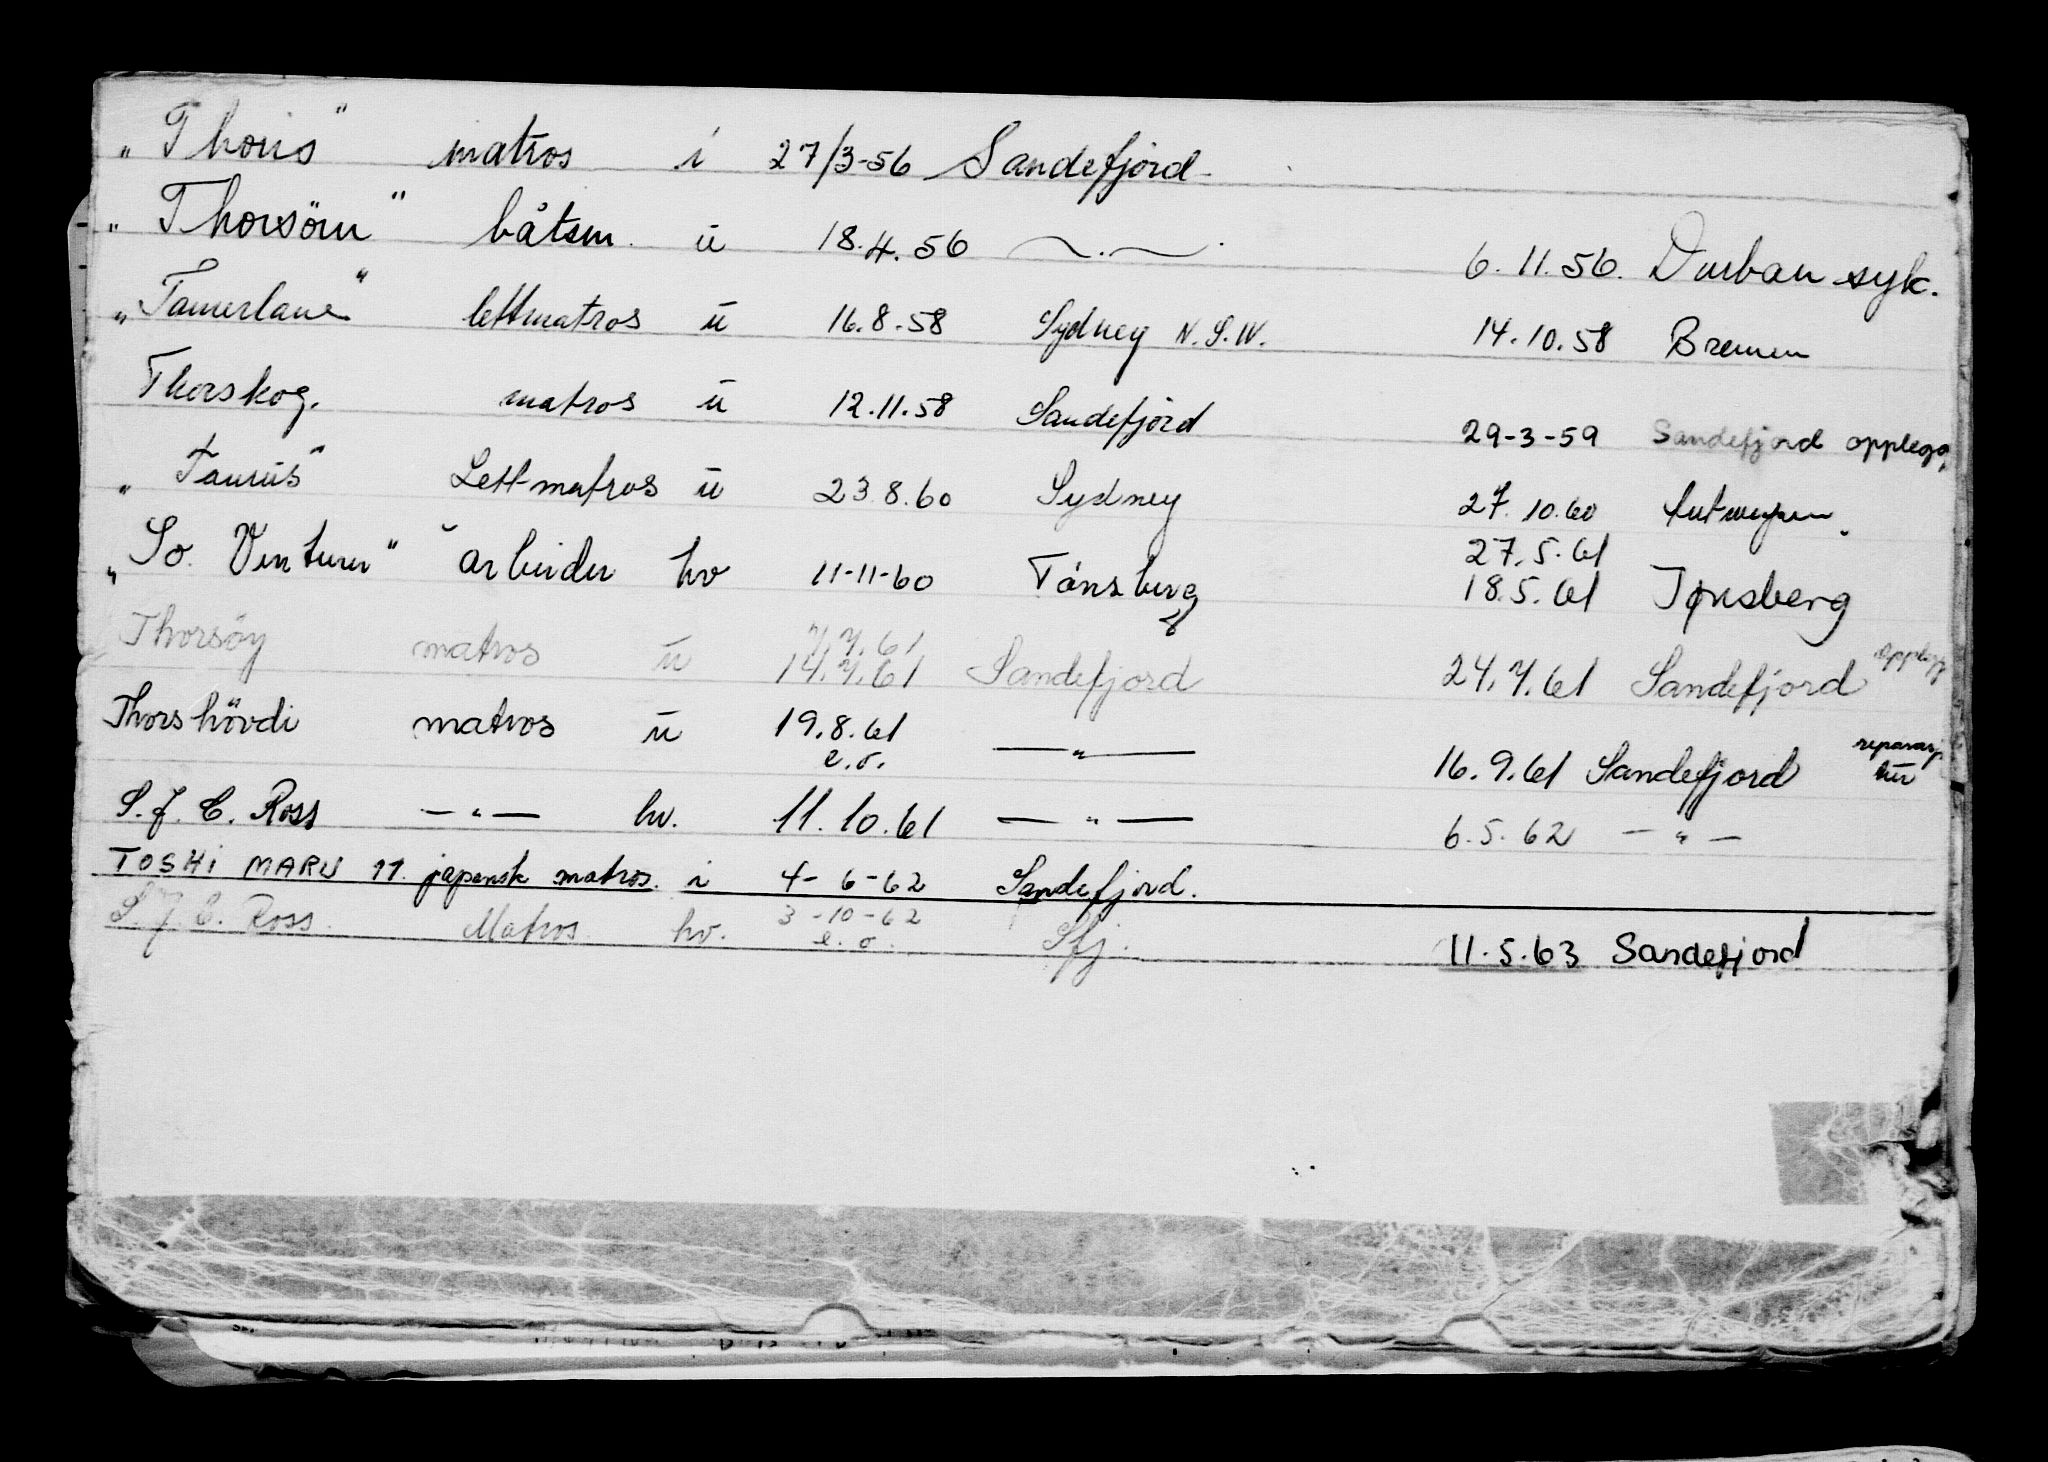 „Thoris" matros i 27/3-56 Sandefjord
„Thorsörn" båtsm. u 18.4.56 —.— 6.11.56. Durban syk.
„Tamerlane" lettmatros u 16.8.58 Sydney N.S.W. 14.10.58 Bremen
Thorskog. matros u 12.11.58 Sandefjord 29-3-59 Sandefjord opplegg
„Taurus" Lettmatros u 23.8.60 Sydney 27.10.60 Antwerpen.
27.5.61
„So. Venturer" arbeider hv 11-11-60 Tönsberg 18.5.61 Tønsberg
7.7.61
Thorsöy matros u 14.7.61 Sandefjord 24.7.61 Sandefjord opplegg
Thorshövdi matros u 19.8.61 —"— 16.9.61 Sandefjord reparasj
e.o. tur
S.J.C. Ross —"— hv. 11.10.61 —"— 6.5.62 —"—
TOSHI MARU 11. japansk matros. i 4-6-62 Sandefjord.
S.J.C. Ross. Matros hv. 3-10-62 Sfj. 11.5.63 Sandefjord
e.o.